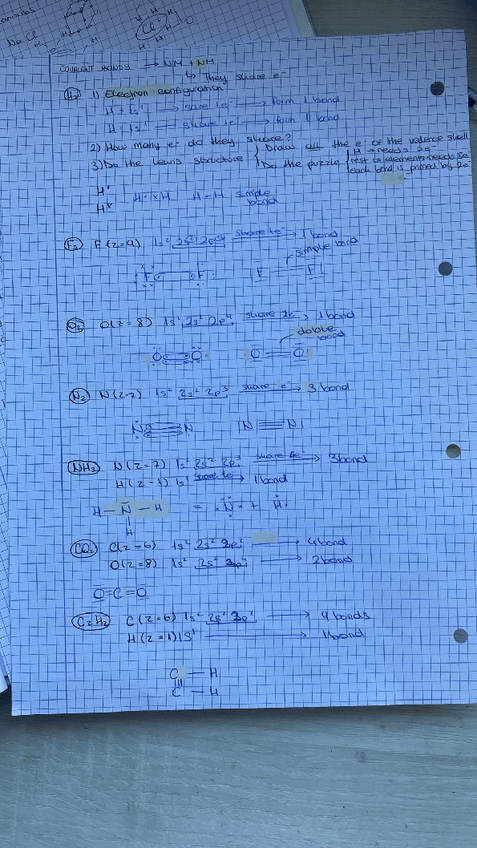 NaCl
COVALENT BONDS → NM + NM
↳ They share e⁻
H₂ 1) Electron configuration
H = 1s¹ → share 1e⁻ → form 1 bond
H = 1s¹ → share 1e⁻ → form 1 bond
2) How many e⁻ do they share?
3) Do the Lewis structure { Draw all the e⁻ of the valence shell
Do the puzzle { H → needs 2e⁻
rest of elements needs 8e⁻
each bond is formed by 2e⁻
H• H•×H H–H simple
H× bond
F₂ F (z=9) 1s² 2s² 2p⁵ share 1e⁻ → 1 bond
simple bond
F F |F F|
O₂ O(z=8) 1s² 2s² 2p⁴ share 2e⁻ → 1 bond
double bond
O O O=O
N₂ N(z=7) 1s² 2s² 2p³ share e⁻ → 3 bond
N N |N≡N|
NH₃ N(z=7) 1s² 2s² 2p³ share e⁻ → 3 bond
H(z=1) 1s¹ share 1e⁻ → 1 bond
H–N–H = N + H
H
CO₂ C(z=6) 1s² 2s² 2p² → 4 bond
O(z=8) 1s² 2s² 2p⁴ → 2 bond
O=C=O
C₂H₂ C(z=6) 1s² 2s² 2p² → 4 bonds
H(z=1) 1s¹ → 1 bond
C–H
|||
C–H